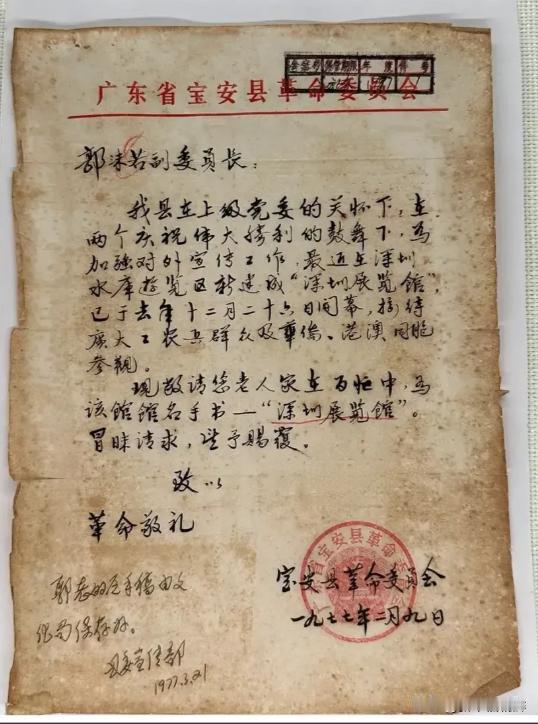 保管期限 年度
广东省宝安县革命委员会
郭沫若副委员长：
我县在上级党委的关怀下，在
两个庆祝伟大胜利的鼓舞下，为
加强对外宣传工作，最近在深圳
水库游览区新建成“深圳展览馆”，
已于去年十二月二十六日闭幕，接待
广大工农兵群众及华侨、港澳同胞
参观。
现敬请您老人家在百忙中，为
该馆馆名手书—“深圳展览馆”。
冒昧请求，望予赐覆。
致以
革命敬礼
省宝安县革命委
宝安县革命委员会
一九七七年二月九日
郭老的手稿由文
化局保存好。
县委宣传部
1977.3.21